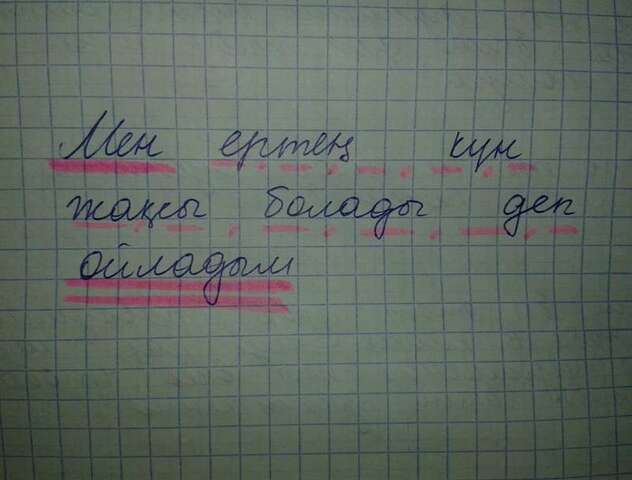 Мен ертең күн
жақсы болады деп
ойладым